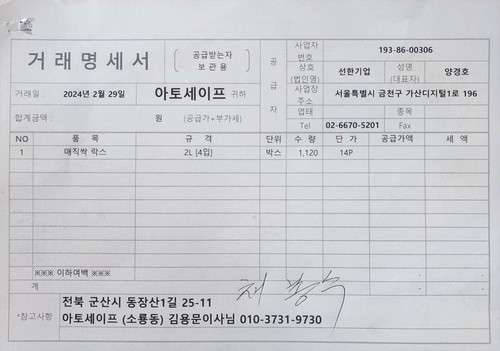 거래명세서
공급받는자
보관용
공급자
사업자
번호
193-86-00306
상호
(법인명)
선한기업
성명
(대표자)
양경호
사업장
주소
서울특별시 금천구 가산디지털1로 196
업태
종목
Tel
02-6670-5201
Fax
거래일 :
2024년 2월 29일
아토세이프 귀하
합계금액 :
원
(공급가+부가세)
NO 품 목 규 격 단위 수 량 단 가 공급가액 세 액
1 매직싹 락스 2L [4입] 박스 1,120 14P
※※※ 이하여백 ※※※
계
*참고사항
전북 군산시 동장산1길 25-11
아토세이프 (소룡동) 김용문이사님 010-3731-9730